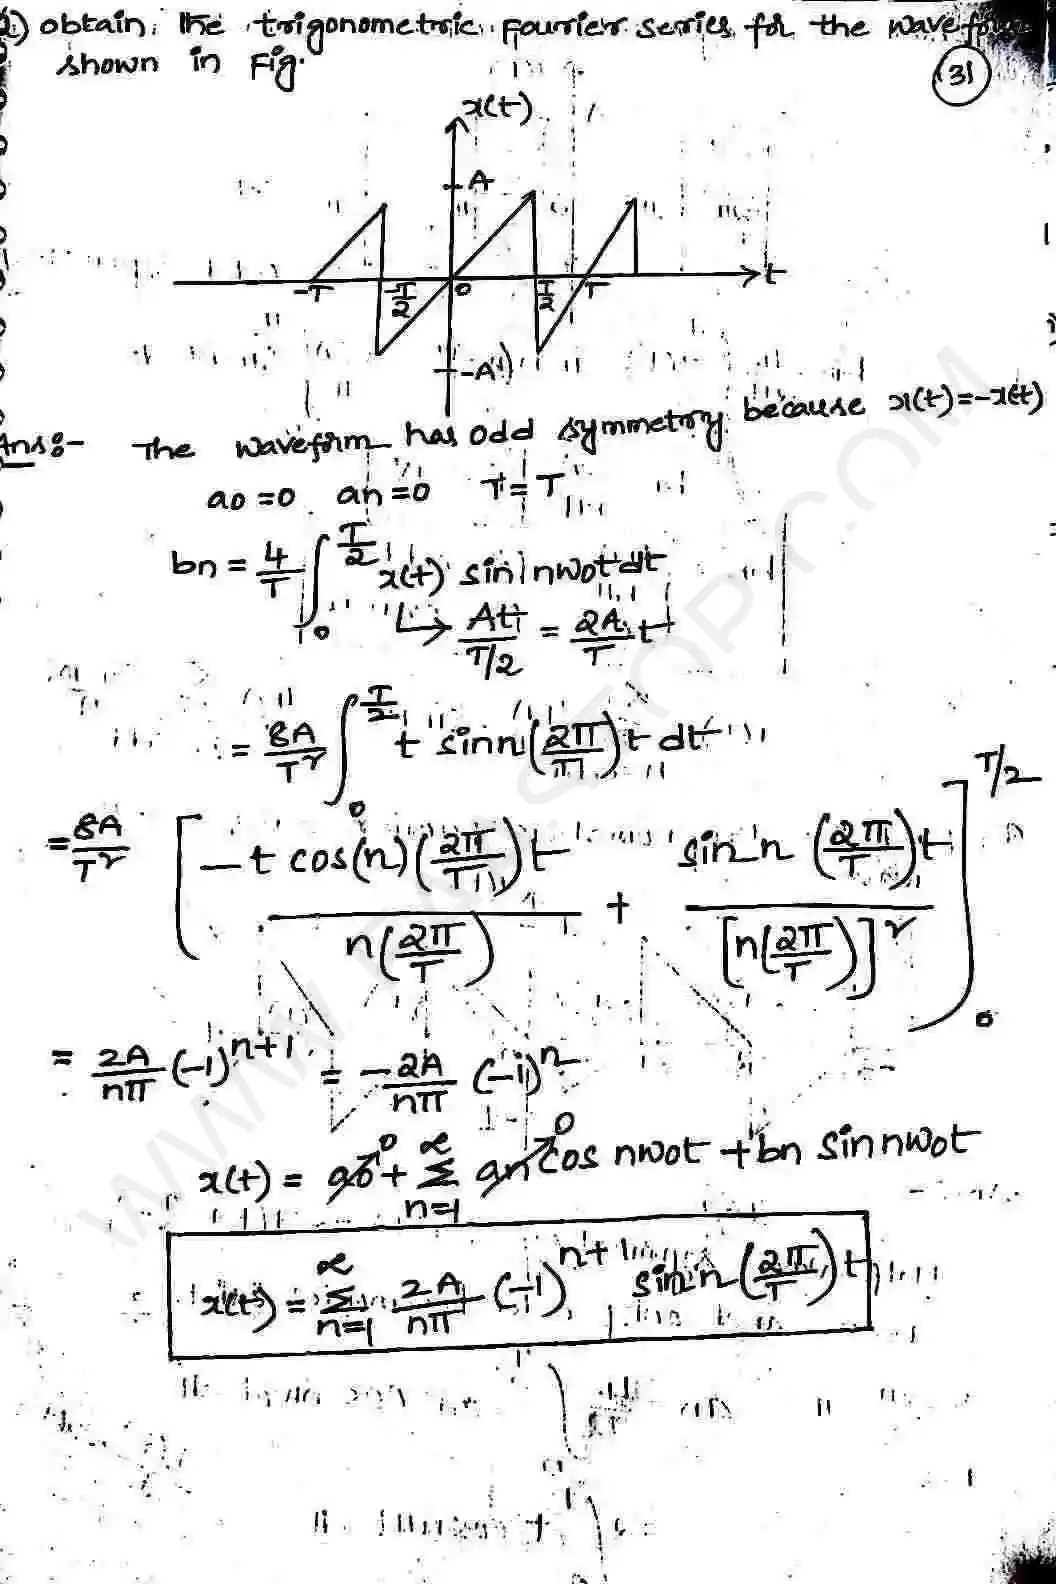 2) obtain the trigonometric Fourier series for the wavefo
shown in Fig.
31
x(t)
A
-T -T/2 0 T/2 T t
-A
Ans:- The waveform has odd symmetry because x(t)=-x(-t)
a0 =0 an =0 T = T
bn = 4/T ∫₀^(T/2) x(t) sin nω0t dt
↳ At/(T/2) = 2A/T t
= 8A/T² ∫₀^(T/2) t sin n(2π/T)t dt
= 8A/T² [ -t cos(n)(2π/T)t / n(2π/T) + sin n (2π/T)t / [n(2π/T)]² ]₀^(T/2)
= 2A/nπ (-1)^(n+1) = -2A/nπ (-1)^n
x(t) = a0 0 + ∑_(n=1)^∞ an 0 cos nω0t + bn sin nω0t
x(t) = ∑_(n=1)^∞ 2A/nπ (-1)^(n+1) sin n (2π/T) t
WWW. .COM